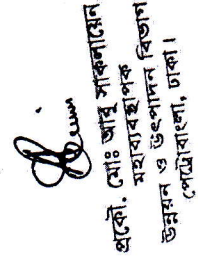 প্রকৌ. মোঃ আবু সাকলায়েন
মহাব্যবস্থাপক
উন্নয়ন ও উৎপাদন বিভাগ
পেট্রোবাংলা, ঢাকা।